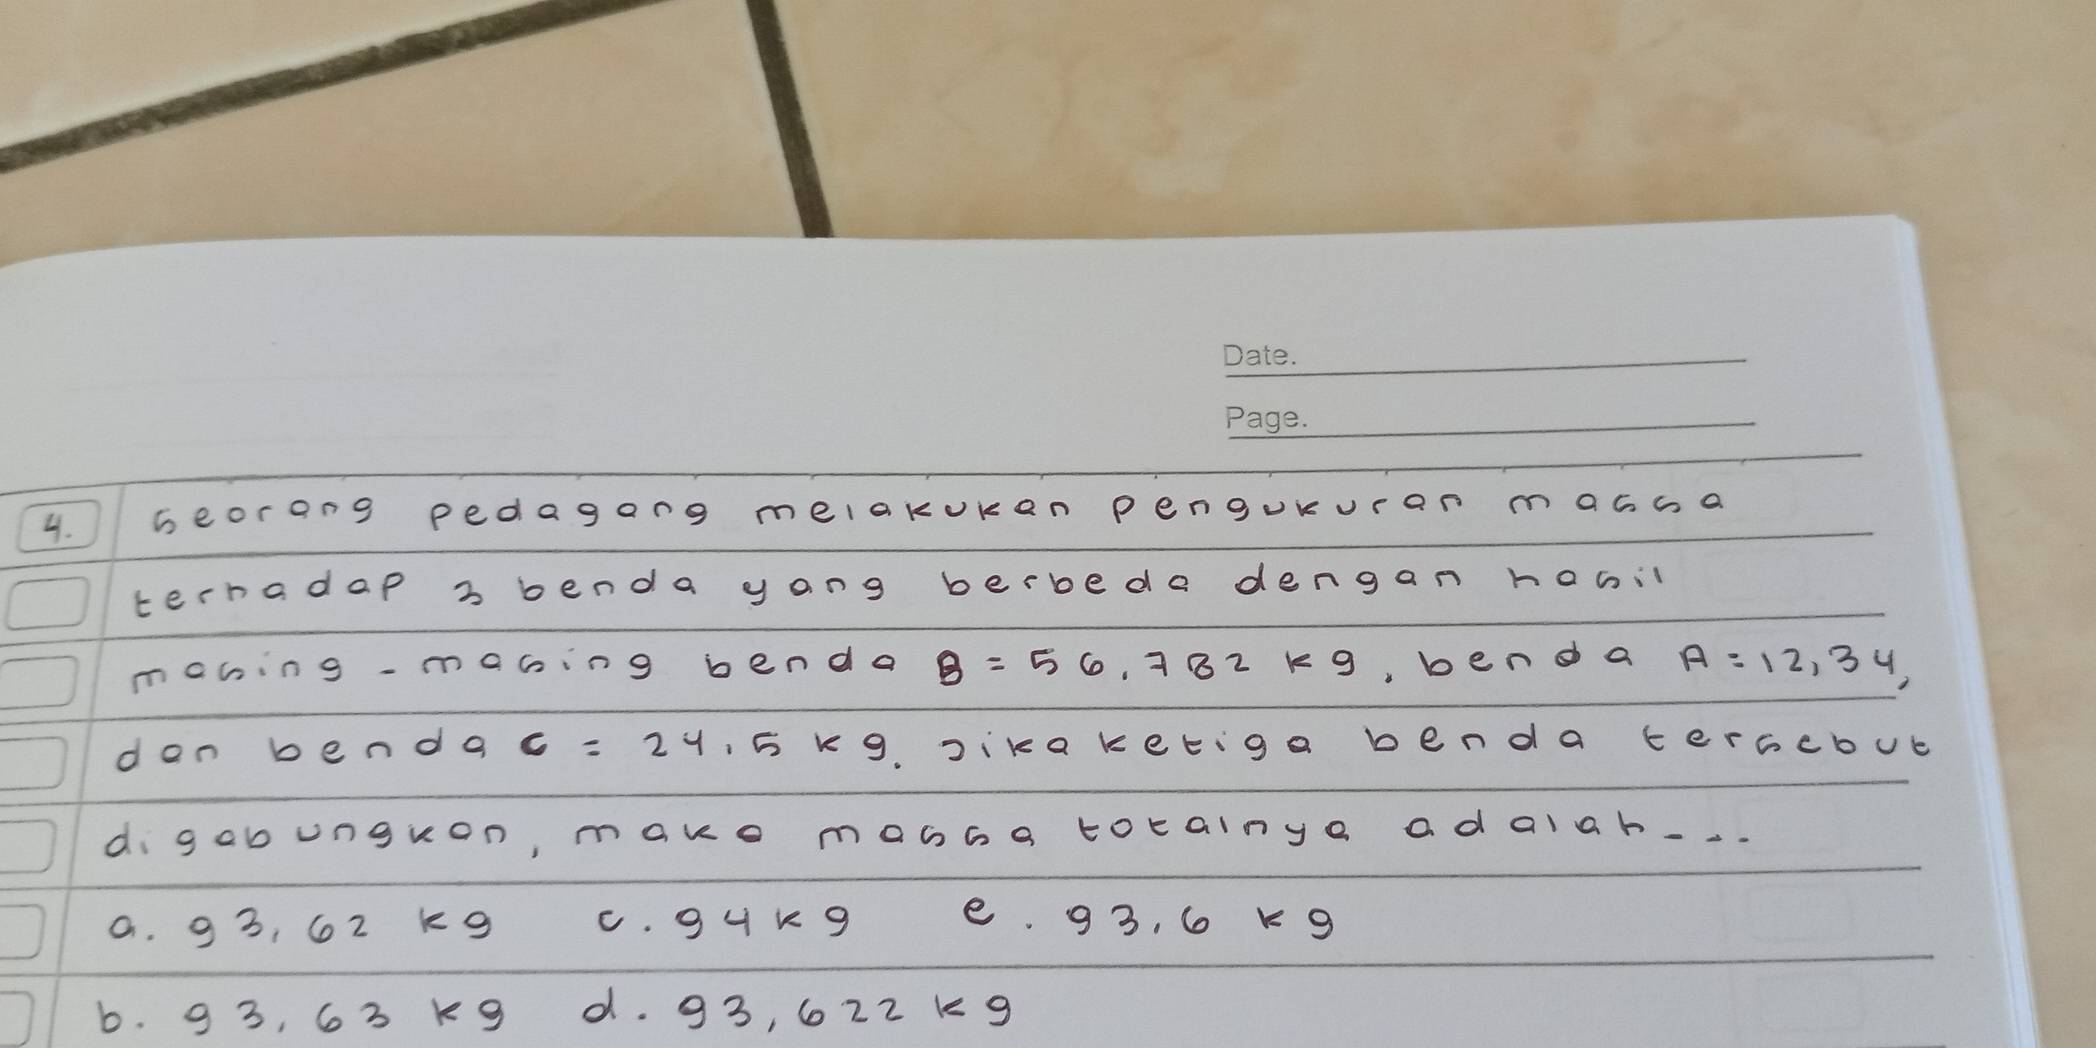 Date.
Page.
4. seorang pedagang melakukan pengukuran massa
terhadap 3 benda yang berbeda dengan hasil
masing-masing benda B = 56,782 kg, benda A = 12,34,
dan benda C = 24,5 kg. Jika ketiga benda tersebut
digabungkan, maka massa totalnya adalah...
a. 93,62 kg c. 94 kg e. 93,6 kg
b. 93,63 kg d. 93,622 kg